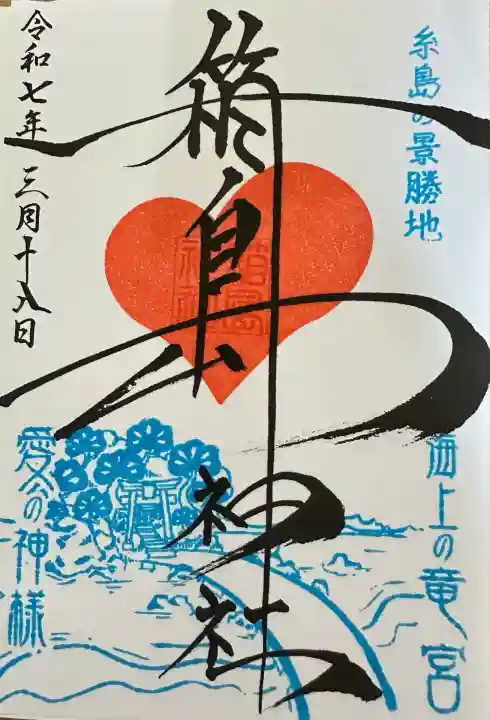 糸島の景勝地
海上の竜宮
箱島神社
愛の神様
令和七年 三月十八日
箱島神社